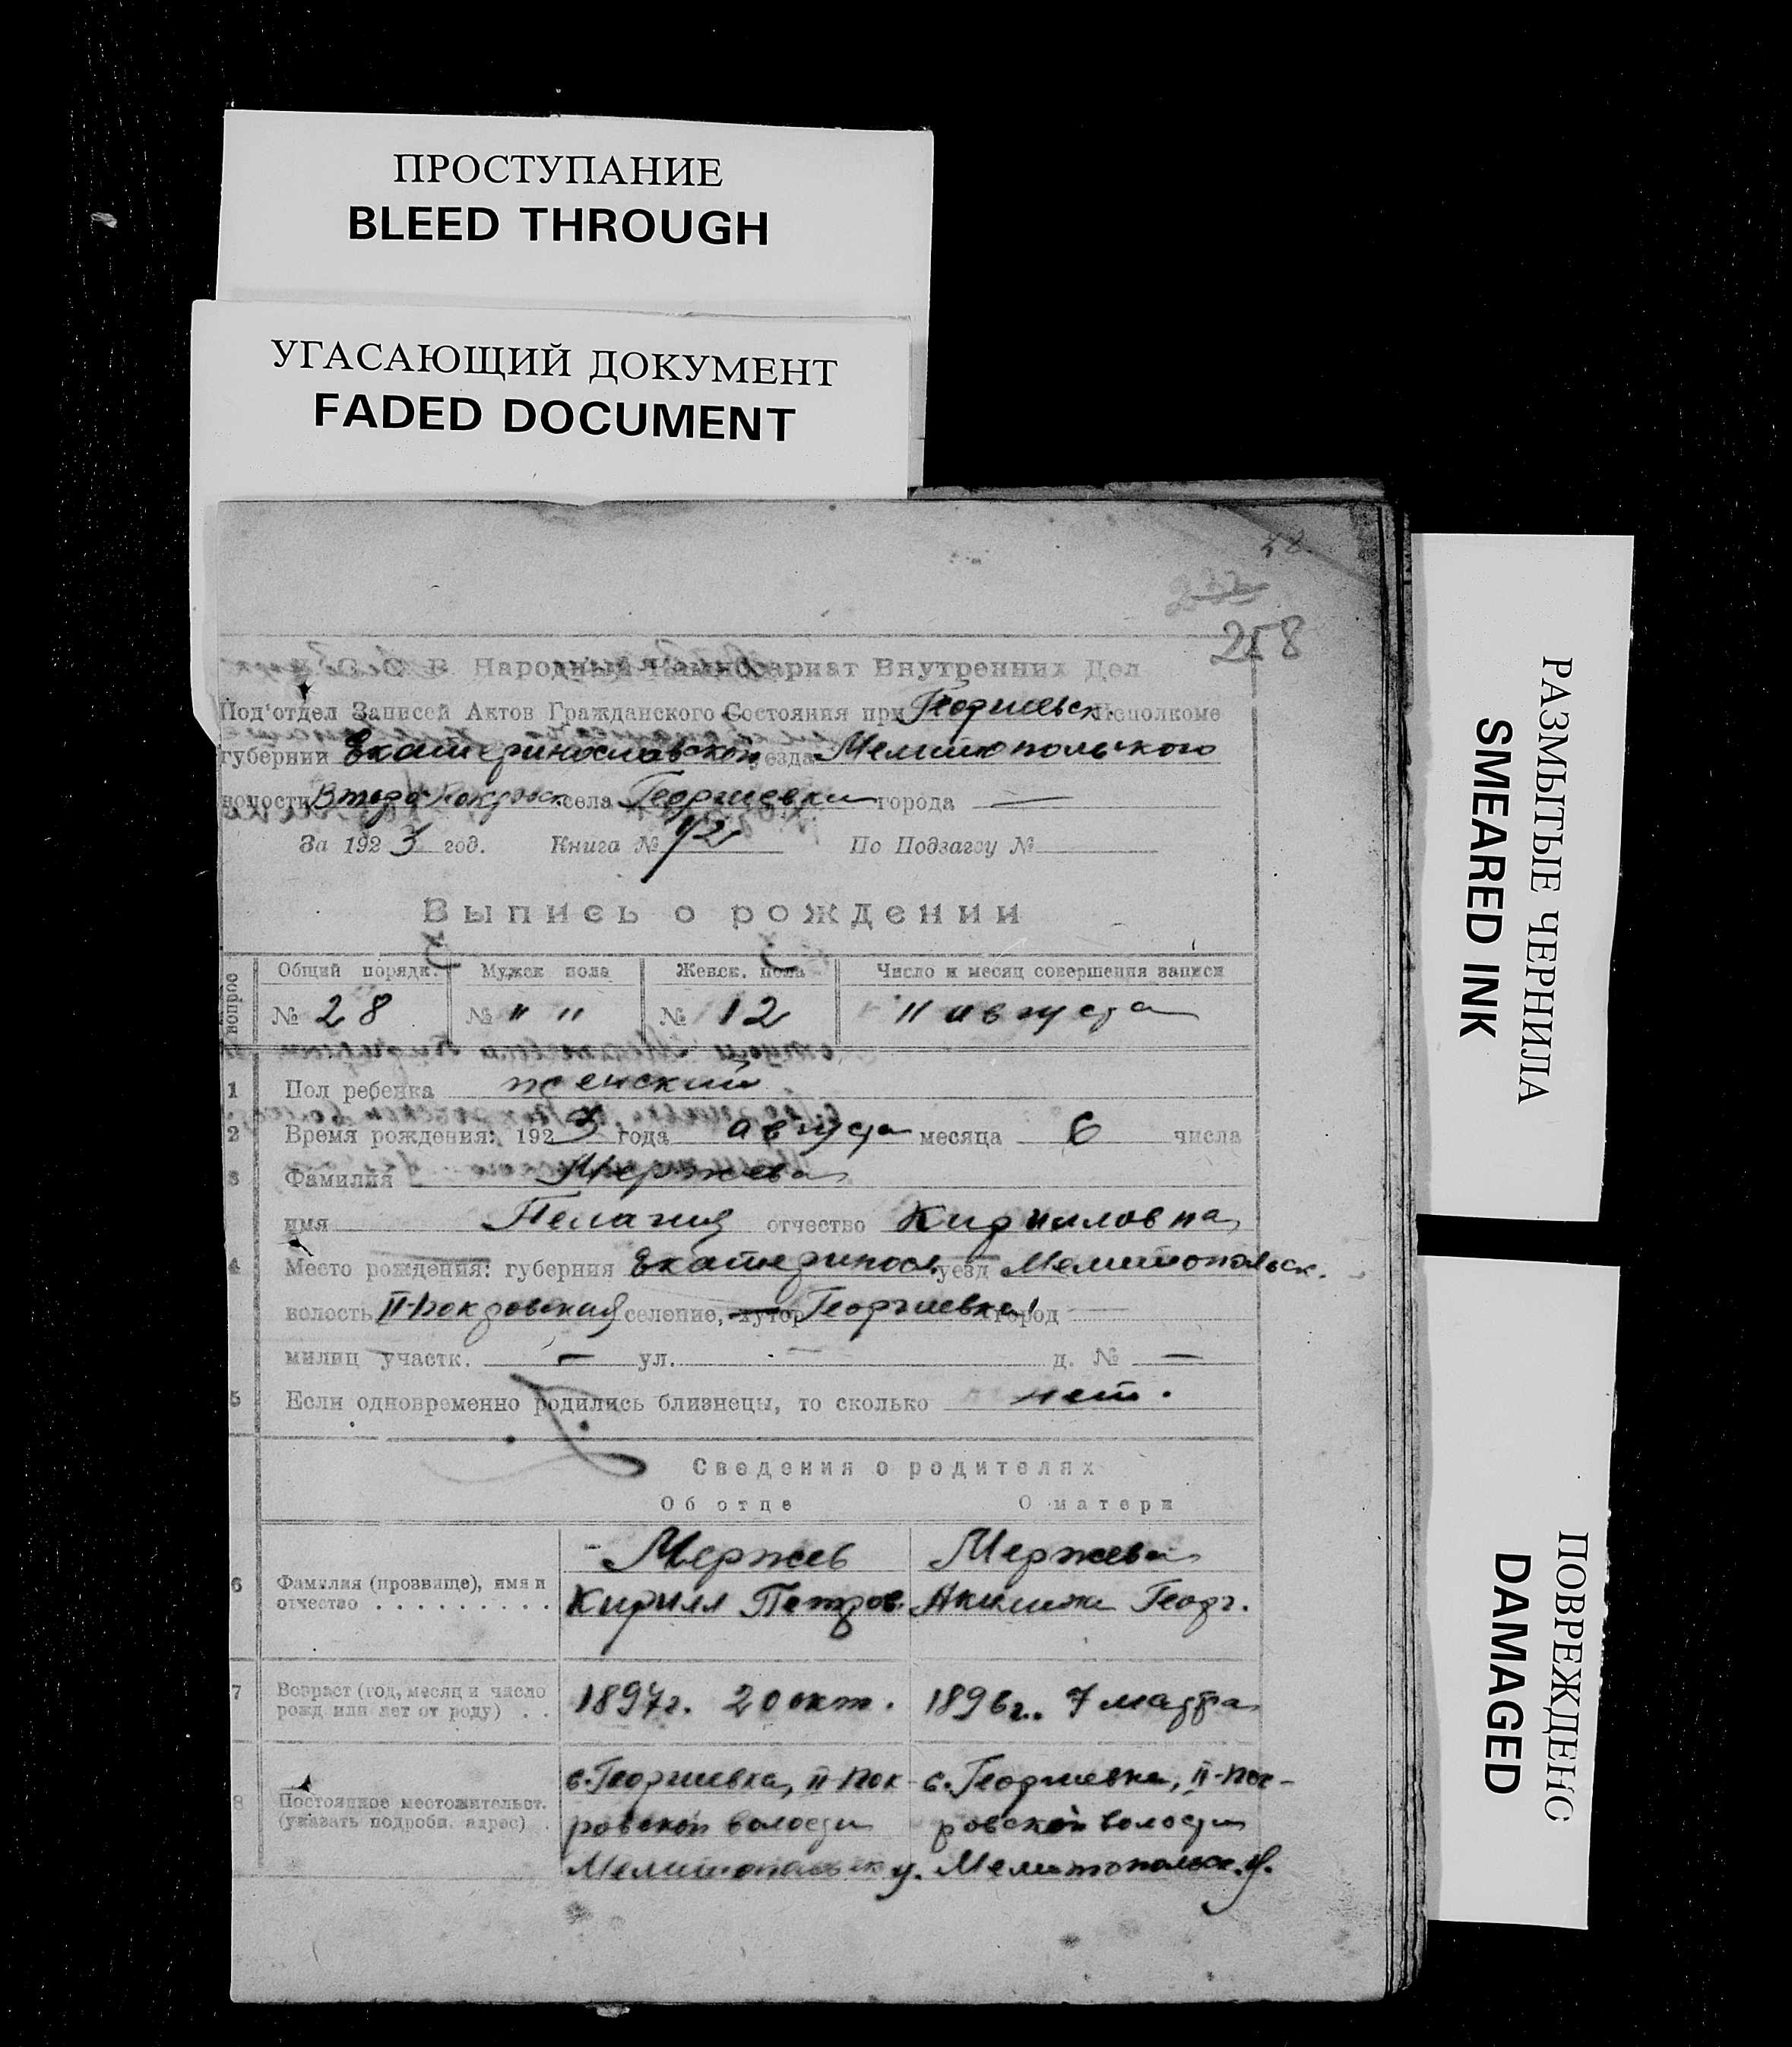 ПРОСТУПАНИЕ
BLEED THROUGH
УГАСАЮЩИЙ ДОКУМЕНТ
FADED DOCUMENT
258
Народный Комиссариат Внутренних Дел
Под'отдел Записей Актов Гражданского Состояния при Георгиевск Исполкоме
губернии Екатеринославской уезда Мелитопольского
волости села Георгиевки города —
За 1923 год. Книга № По Подзагсу №
Выпись о рождении
вопрос Общий порядк. Мужск пола Женск. пола Число и месяц совершения записи
№ 28 № " " № 12 11 августа
1 Пол ребенка женский
2 Время рождения: 1923 года августа месяца 6 числа
3 Фамилия Мержева
имя Пелагия отчество Кирилловна
4 Место рождения: губерния Екатеринос. уезд Мелитопольск.
волость II-Покровская селение, хутор Георгиевка город —
милиц участк. — ул. — д. № —
5 Если одновременно родились близнецы, то сколько нет.
Сведения о родителях
Об отце О матери
Мержев Мержева
6 Фамилия (прозвище), имя и
отчество . . . . . . . . . Кирилл Петров. Георг.
7 Возраст (год, месяц и число
рожд или лет от роду) . . 1897г. 20 окт. 1896г. 7 марта
с. Георгиевка, II-Пок- с. Георгиевка, II-Пок-
8 Постоянное местожительст.
(указать подробн. адрес) . ровской волости ровской волости
Мелитопольск у. Мелитопольск. у.
РАЗМЫТЫЕ ЧЕРНИЛА
SMEARED INK
ПОВРЕЖДЕНС
DAMAGED